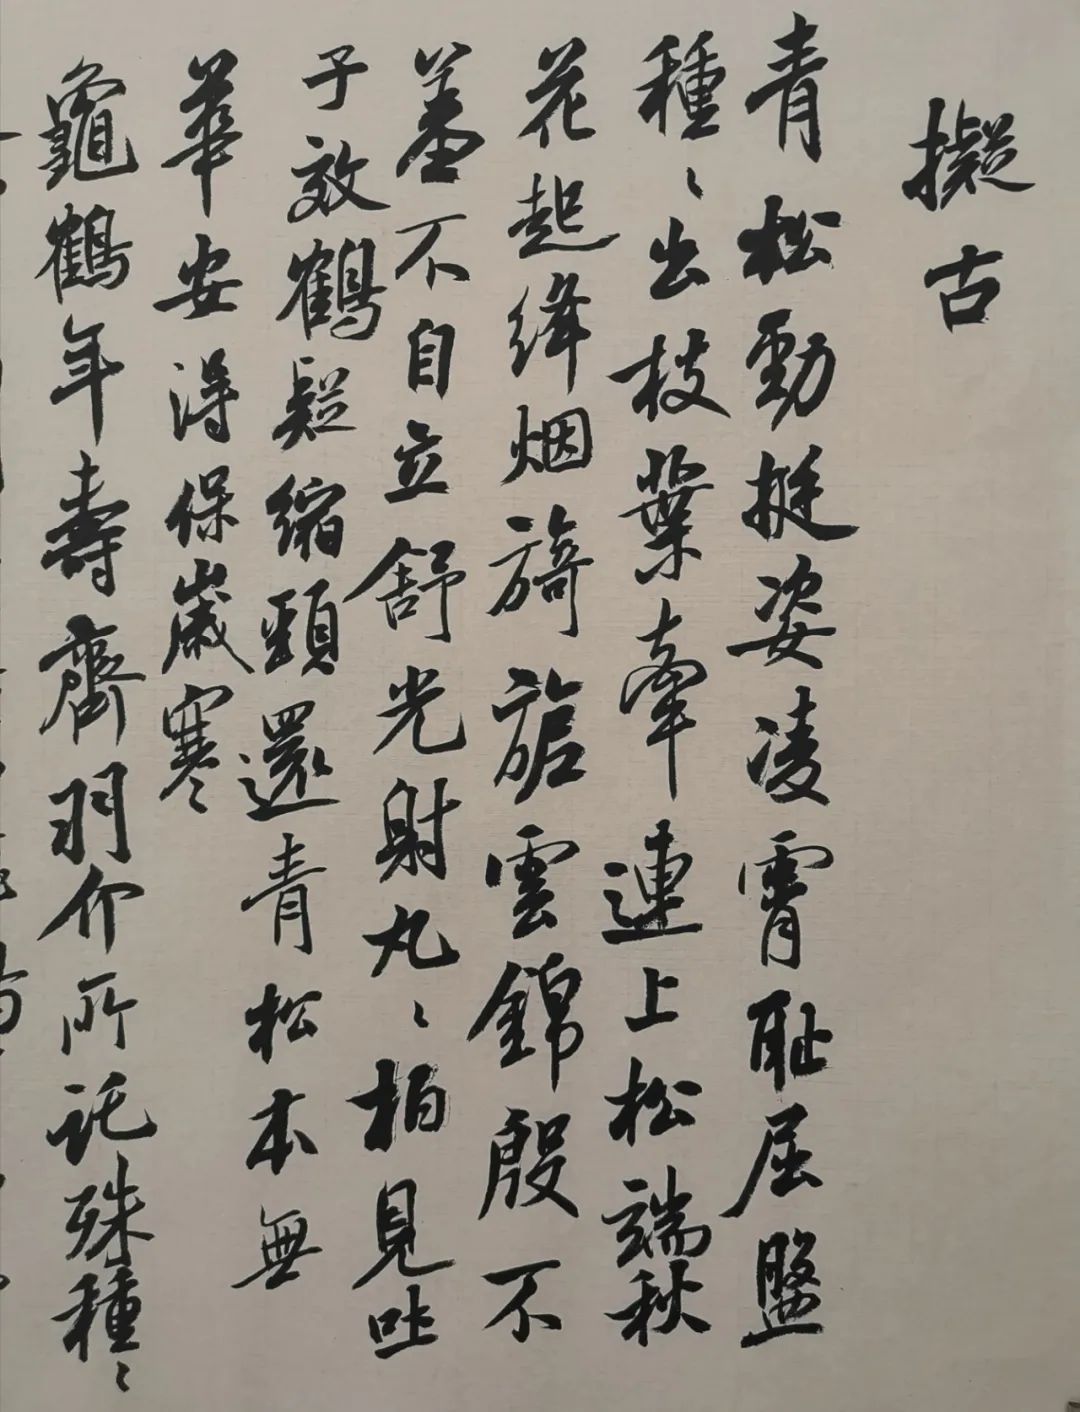 擬古
青松勁挺姿凌霄耻屈盤
種〻出枝葉牽連上松端秋
花起絳烟旖旎雲錦殷不
羞不自立舒光射丸〻柏見吐
子效鶴疑縮頸還青松本無
華安得保歲寒
龜鶴年壽齊羽介所託殊種〻